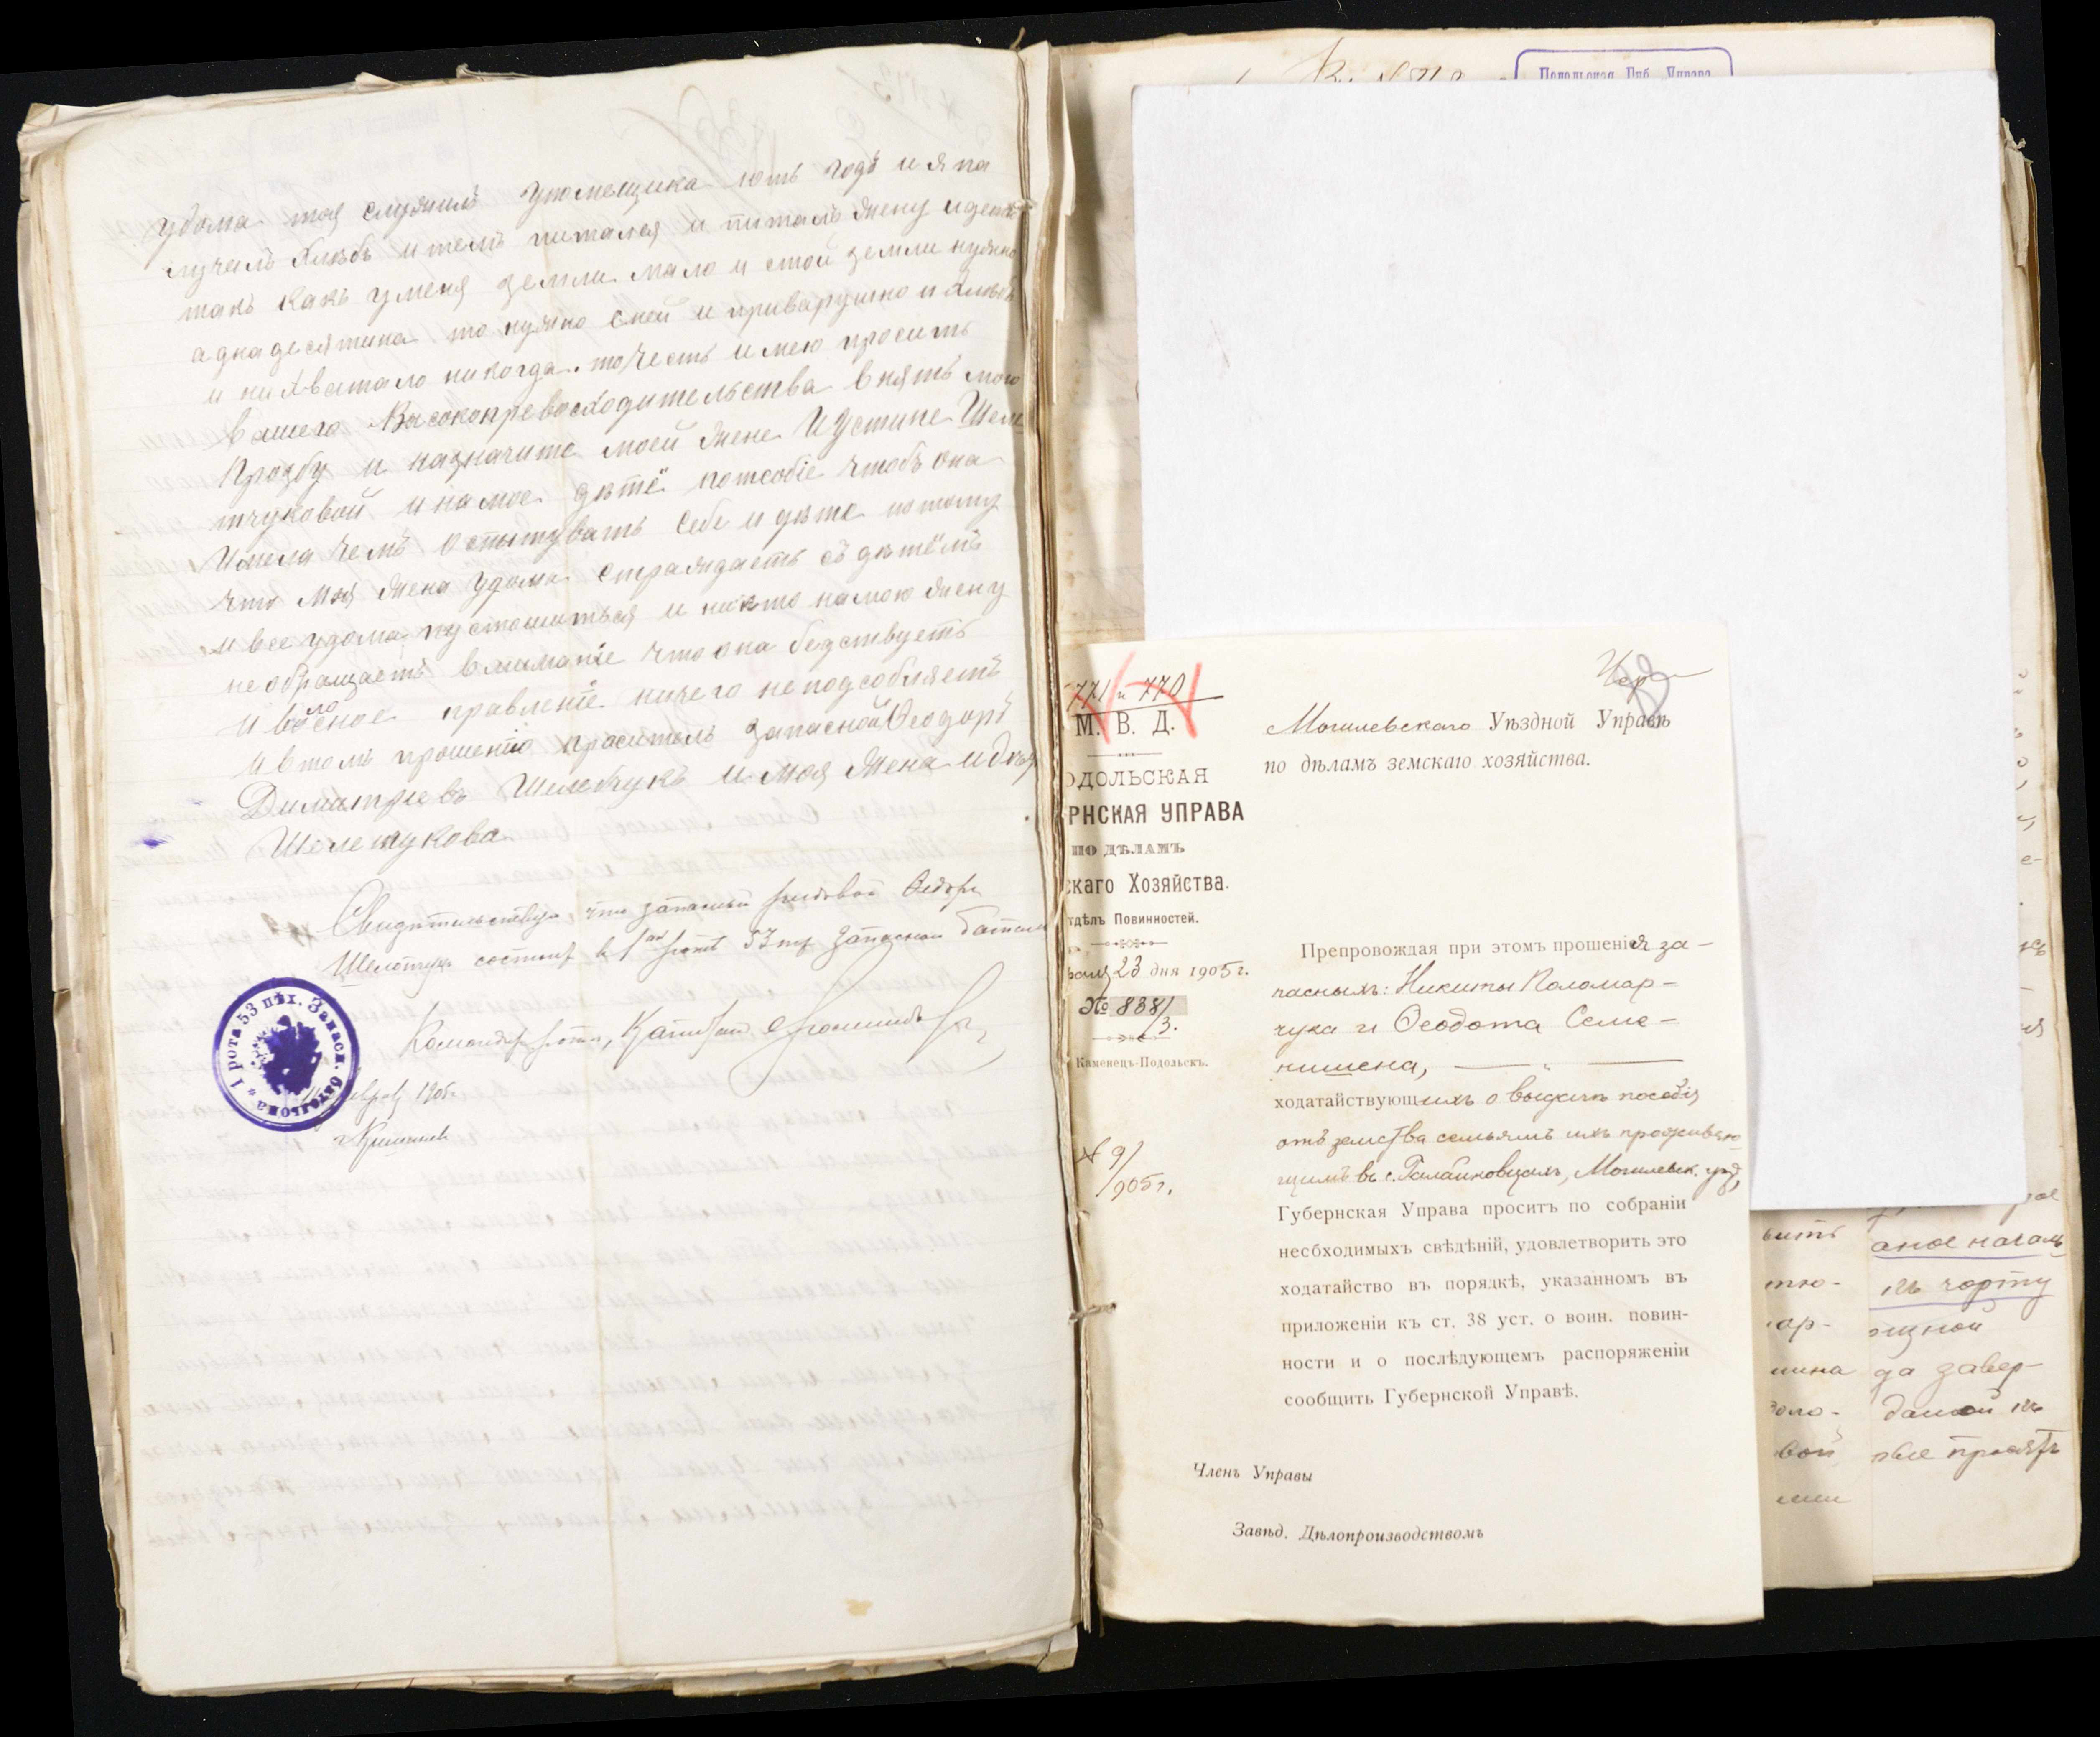 удома тоя служилъ упомещика ютъ годъ и я па
лучалъ хлѣбъ итемъ питался и питалъ жену идете
такъ какъ уменя земли мало и стой земли нужно
аднадесятина то нужно сней и приварушко и хлѣбъ
и нихватало никогда. то честь имею просить
вашего Высокопревосходительства внять мою
Прозбу и назначите моей жене Иустине Шеле
тчуковой и на мое дѣтё потсобіе чтобъ она
Имела чемъ
себе и дѣте потому
что Моя жена удома страждаетъ съ дѣтёмъ
и все удома пустошиться и никто намою жену
необращаетъ вниманіе что она бедствуетъ
И волосное правленіе ничего неподсобляетъ
Ивтомъ прошенію проситель запасной Ѳеодоръ
Димитріевъ и моя жена
Шелетукова.
Свидѣтельствую что запасный рядовой Ѳедоръ
Шелетчукъ состоитъ в 1ой ротѣ 53 пѣ. запаснаго батал
Командиръ роты, Капитанъ
1 рота 53 пѣх. Запасн. батальона
февраля 1905 г.
Подольская Губ. Управа
771 и 770
М. В. Д.
ОДОЛЬСКАЯ
РНСКАЯ УПРАВА
ПО ДѢЛАМЪ
скаго Хозяйства.
тдѣлъ Повинностей.
раля 23 дня 1905 г.
№ 838/3.
Каменецъ-Подольскъ.
№ 9/905 г.
Могилевскаго Уѣздной Управѣ
по дѣламъ земскаго хозяйства.
Препровождая при этомъ прошенія за-
пасныхъ: Никиты Паломар-
чука и Ѳеодота Семе-
нишена,
ходатайствующихъ о выдачѣ пособія
отъ земства семьямъ ихъ проживаю-
щимъ в с. Галайковцахъ, Могилевск. уѣзд,
Губернская Управа проситъ по собраніи
необходимыхъ свѣдѣній, удовлетворить это
ходатайство въ порядкѣ, указанномъ въ
приложеніи къ ст. 38 уст. о воин. повин-
ности и о послѣдующемъ распоряженіи
сообщить Губернской Управѣ.
Членъ Управы
Завѣд. Дѣлопроизводствомъ